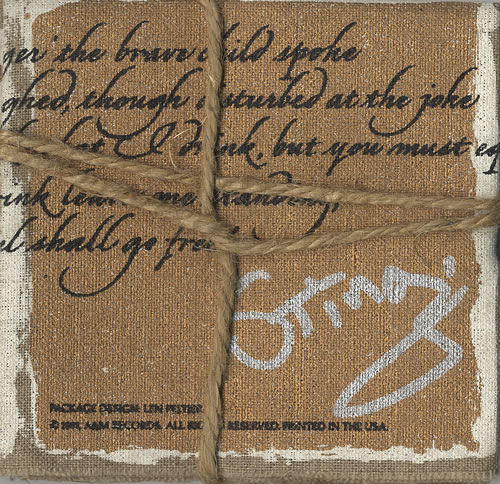 ger' the brave child spoke
ghed, though disturbed at the joke
I drink, but you must
drink
shall go free
Sting
PACKAGE DESIGN: LEN PELTIER
© 1991, A&M RECORDS. ALL RIGHTS RESERVED. PRINTED IN THE USA.